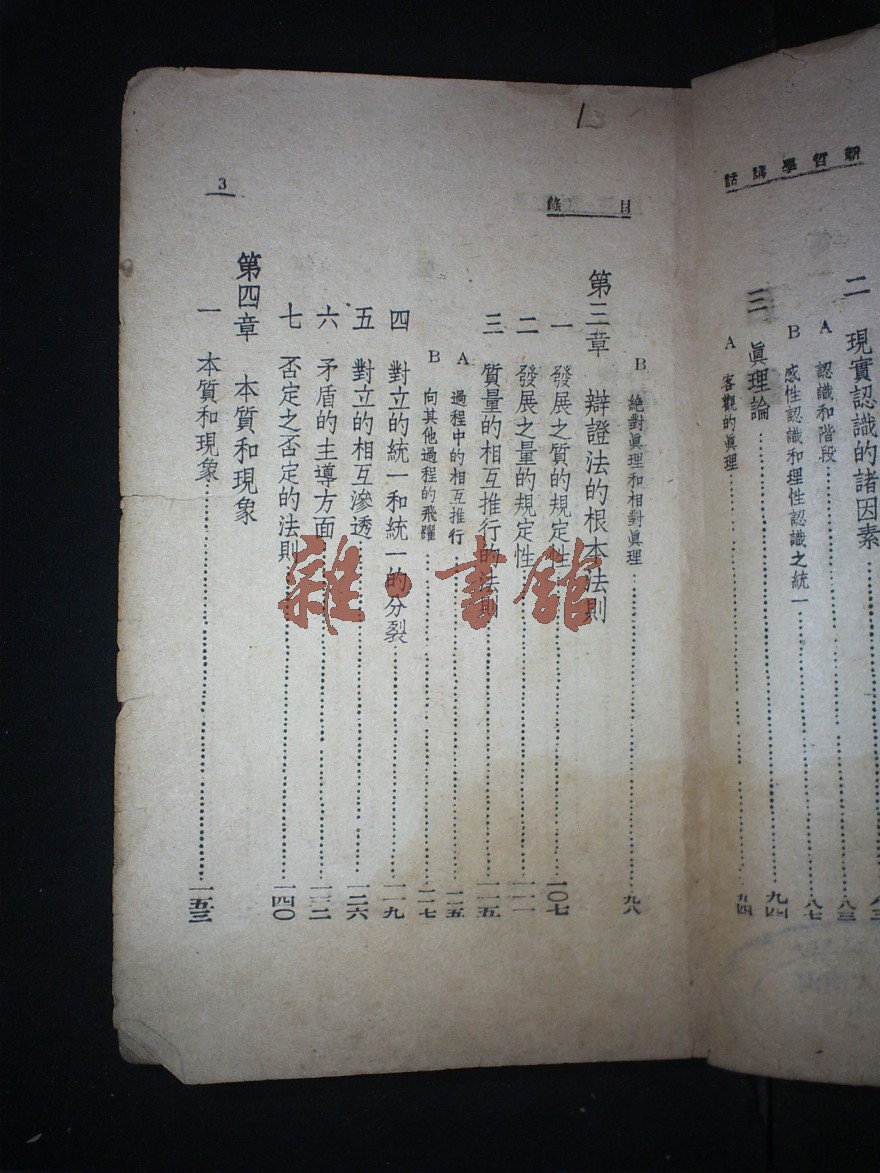 新哲學講話
二 現實認識的諸因素……八三
A 認識和階段……八三
B 感性認識和理性認識之統一……八七
三 眞理論……九四
A 客觀的眞理……九四
目錄
3
B 絕對眞理和相對眞理……九八
第三章 辯證法的根本法則
一 發展之質的規定性……一〇七
二 發展之量的規定性……一一一
三 質量的相互推行的法則……一一五
A 過程中的相互推行……一一五
B 向其他過程的飛躍……一一七
四 對立的統一和統一的分裂……一一九
五 對立的相互滲透……一二六
六 矛盾的主導方面……一三二
七 否定之否定的法則……一四〇
第四章 本質和現象
一 本質和現象……一五三
雜·書館